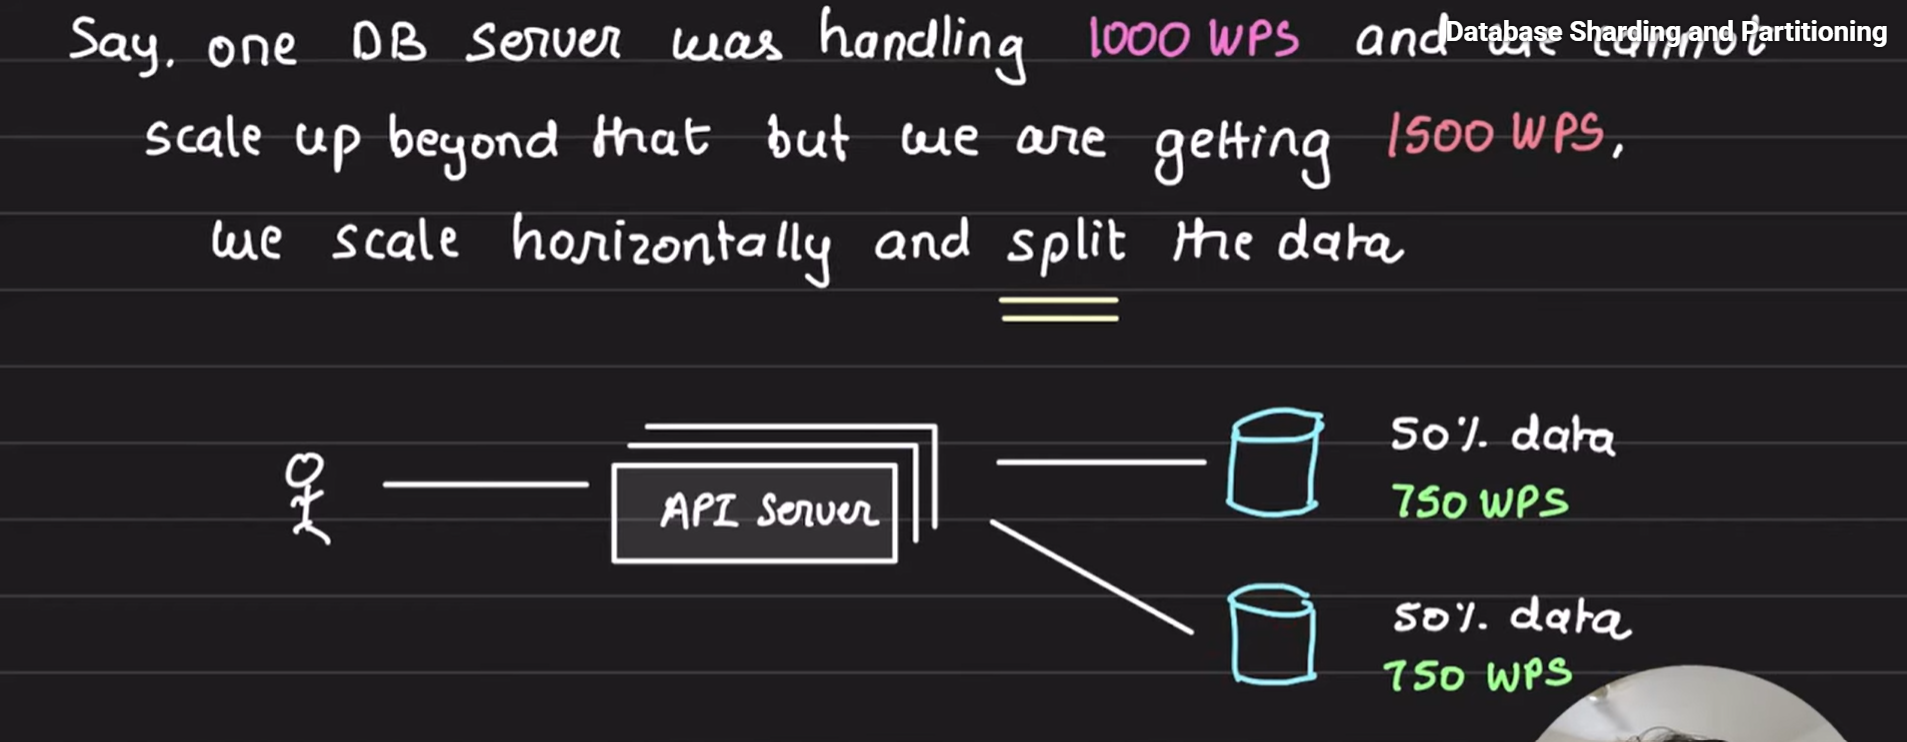 Database Sharding and Partitioning
Say, one DB server was handling 1000 WPS and we cannot
scale up beyond that but we are getting 1500 WPS,
we scale horizontally and split the data
API Server
50% data
750 WPS
50% data
750 WPS